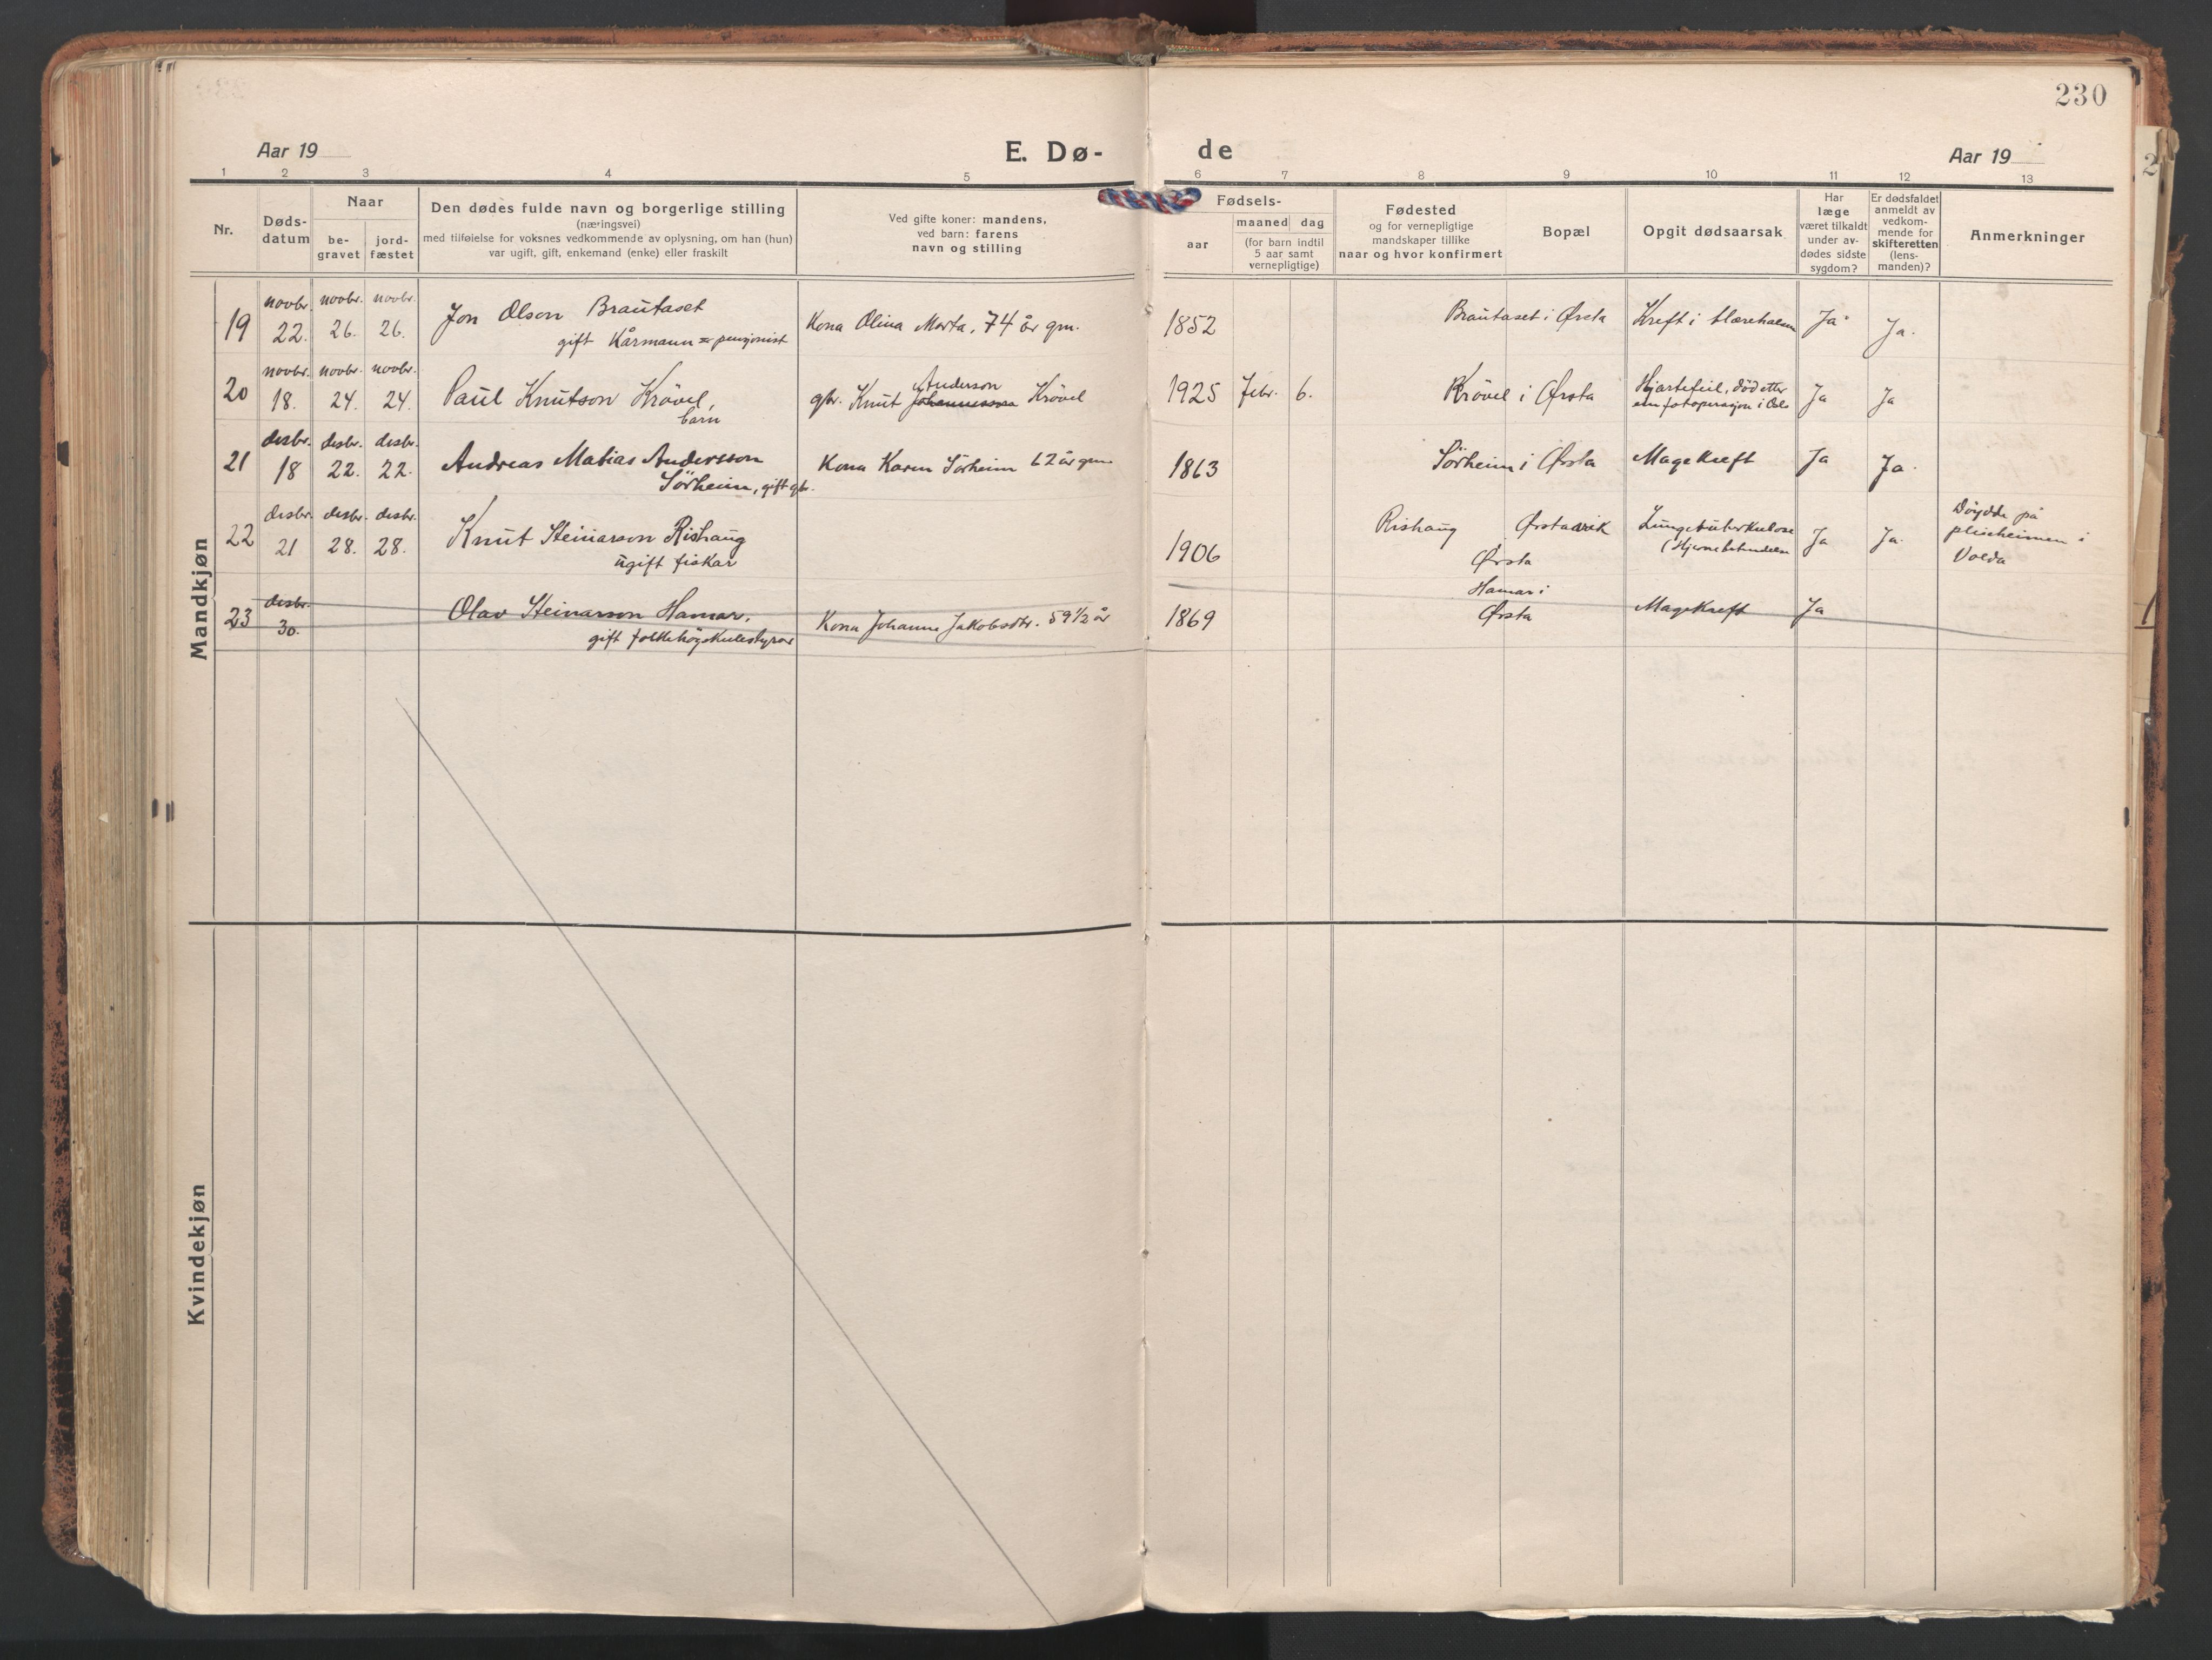 230
Aar 19
E. Dø-
de
Aar 19
1 2 3 4 5 6 7 8 9 10 11 12 13
Nr.
Døds-
datum
Naar
be-
gravet
jord-
fæstet
Den dødes fulde navn og borgerlige stilling
(næringsvei)
med tilføielse for voksnes vedkommende av oplysning, om han (hun)
var ugift, gift, enkemand (enke) eller fraskilt
Ved gifte koner: mandens,
ved barn: farens
navn og stilling
Fødsels-
aar
maaned dag
(for barn indtil
5 aar samt
vernepligtige)
Fødested
og for vernepligtige
mandskaper tillike
naar og hvor konfirmert
Bopæl
Opgit dødsaarsak
Har
læge
været tilkaldt
under av-
dødes sidste
sygdom?
Er dødsfaldet
anmeldt av
vedkom-
mende for
skifteretten
(lens-
manden)?
Anmerkninger
Mandkjøn
novbr. novbr. novbr.
19 22. 26. 26. Jon Olson Brautaset
gift Kårmann = pensjonist
Kona Olina Marta, 74 år gm.
1852 Brautaset i Ørsta Kreft i blærehalsen Ja Ja.
novbr. novbr. novbr.
20 18. 24. 24. Paul Knutson Krövel,
barn
Anderson
gbr. Knut Johannesson Krövel
1925 febr. 6. Krövel i Ørsta Hjartefeil, död etter
Ja Ja
desbr. desbr. desbr.
21 18 22. 22. Andreas Matias Andersson
Sörheim, gift gbr.
Kona Karen Sörheim 62 år gm.
1863 Sörheim i Ørsta Magekreft Ja Ja.
desbr. desbr. desbr.
22 21 28. 28. Knut Steinarson Rishaug
ugift fiskar
1906 Rishaug Ørstavik
Ørsta
Lungetuberkulose
Ja Ja.
Döydde på
pleieheimen i
Volda
desbr.
23 30. Olav Steinarson Hamar,
gift folkehögskulestyrar
Kona Johanne Jakobsdtr. 59 1/2 år
1869 Hamar i
Ørsta
Magekreft Ja
Kvindekjøn